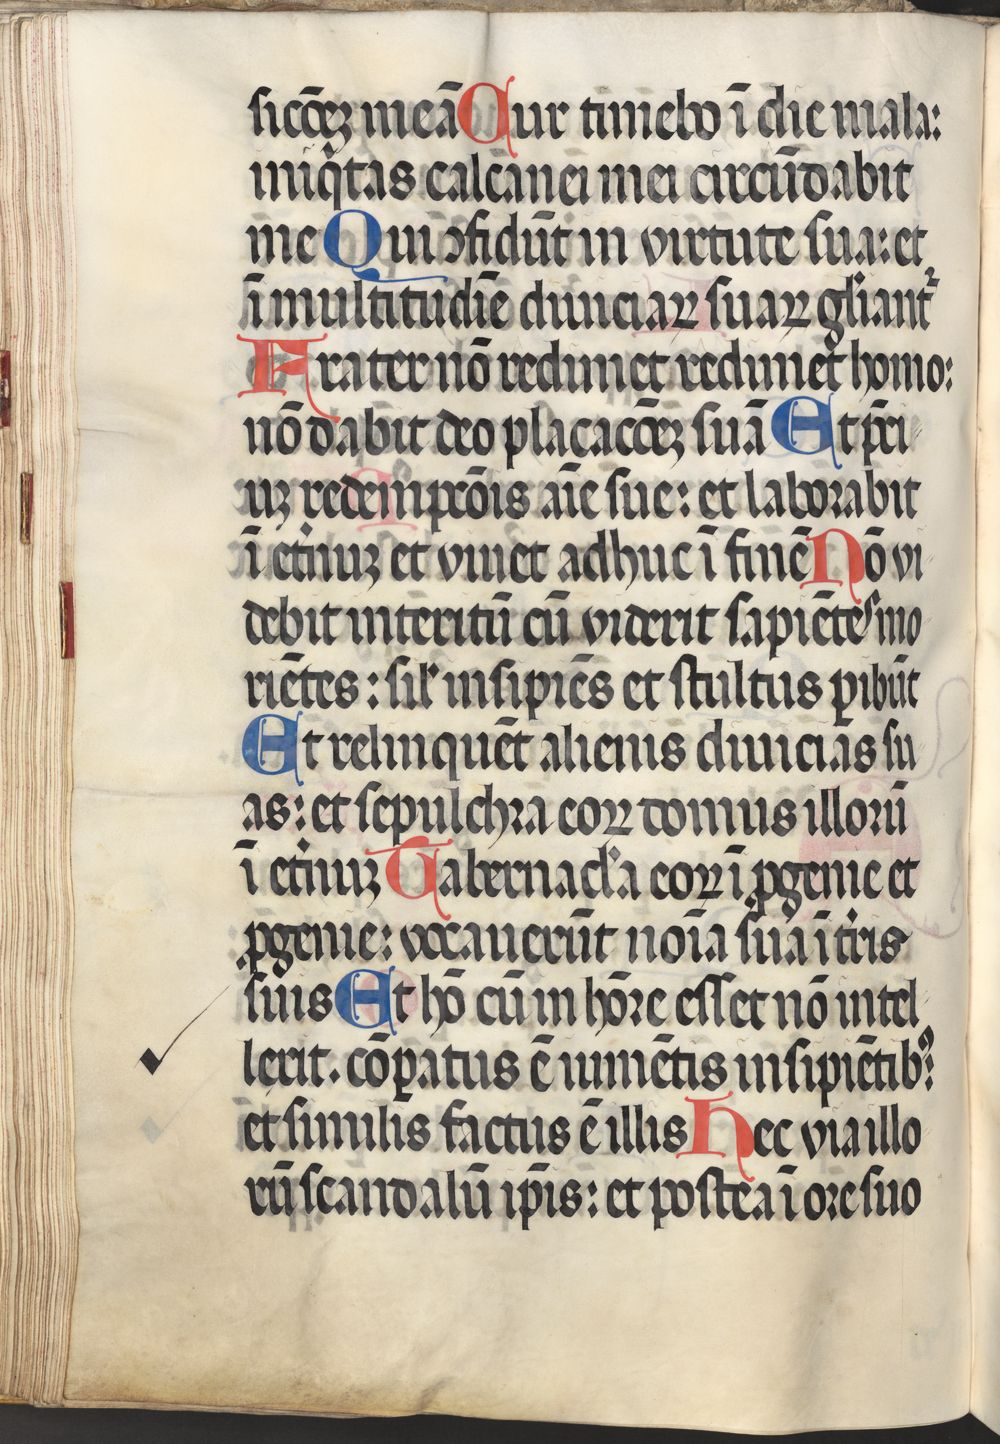 sicōēꝫ meā Cur timebo ī die mala:
iniqͥtas calcanei mei circūdabit
me Qui ↄfidūt in virtute sua: et
ī multitudīe diuiciaꝝ suaꝝ gl̓iantᷣ
Frater nō redimet redimet homo:
nō dabit deo placacōēꝫ suā Et p̄ci
uꝫ redempcōis aīe sue: et laborabit
ī et̓nuꝫ et viuet adhuc ī finē Nō vi
debit interitū cū viderit sapiētes mo
riētes: sil̓ insipiēs et stultus ꝑibūt
Et relinquēt alienis diuicias su
as: et sepulchra eoꝝ domus illorū
ī et̓nuꝫ Tabernacl̓a eoꝝ ī ꝓgenie et
ꝓgenie: vocauerūt noīa sua ī t̓ris
suis Et hō cū in hōre esset nō intel
lexit. cōꝑatus ē iumētis insipiētibꝰ:
et similis factus ē illis Hec via illo
rū scandalū ip̄is: et postea ī ore suo